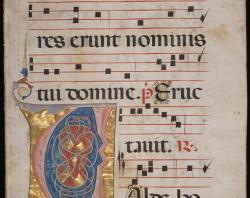 res erunt nominis
tui domine. p Eruc
tavit. R.